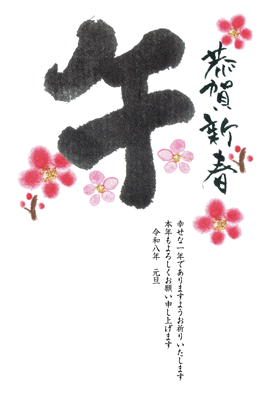 恭賀新春
午
幸せな一年でありますようお祈りいたします
本年もよろしくお願い申し上げます
令和八年 元旦